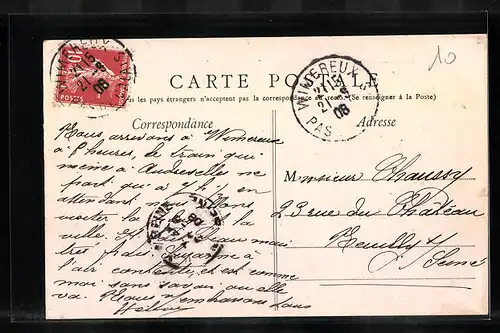 10
CARTE POSTALE
Tous les pays étrangers n'acceptent pas la correspondance au recto. (Se renseigner à la Poste)
Correspondance
Adresse
WIMEREUX
21
08
PAS
10
POSTES
Nous arrivons à Wimereux
à 8 heures, le train qui
mène à Audresselles ne
part qu'à 9h, en
attendant nous allons
visiter la
ville. Il fait beau mais
très frais. Suzanne à
l'air contente, et est comme
moi sans savoir où elle
va. Nous t'embrassons tous
Hélène
Monsieur Chaussy
23 rue du Château
Neuilly s/
Seine